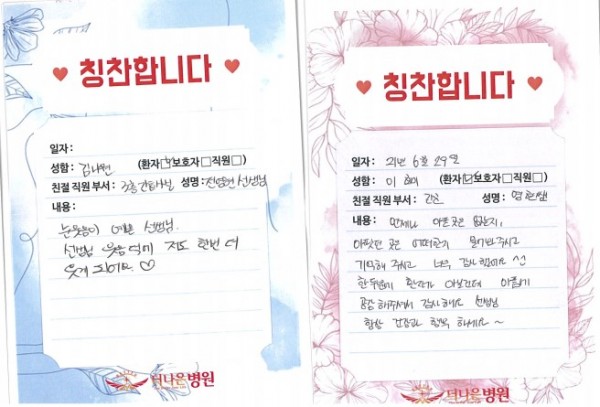 칭찬합니다
일자 :
성함 : 김나현 (환자☑보호자☐직원☐)
친절 직원 부서 : 3층 간호사실 성명 : 선생님
내용 :
눈웃음이 예쁜 선생님.
선생님 웃음 덕에 저도 한번 더
웃게 되어요 ♡
더나은병원
칭찬합니다
일자 : 21년 6월 29일
성함 : 이 (환자☑보호자☐직원☐)
친절 직원 부서 : 성명 :
내용 : 언제나 아픈 곳은 없는지,
아팠던 곳은 어떠한지 물어봐 주시고
기억해 주시고 너무 감사했어요
한두명의 환자가 아닐텐데 아픔까지
공감해주셔서 감사해요 선생님
항상 건강하고 행복하세요~
더나은병원